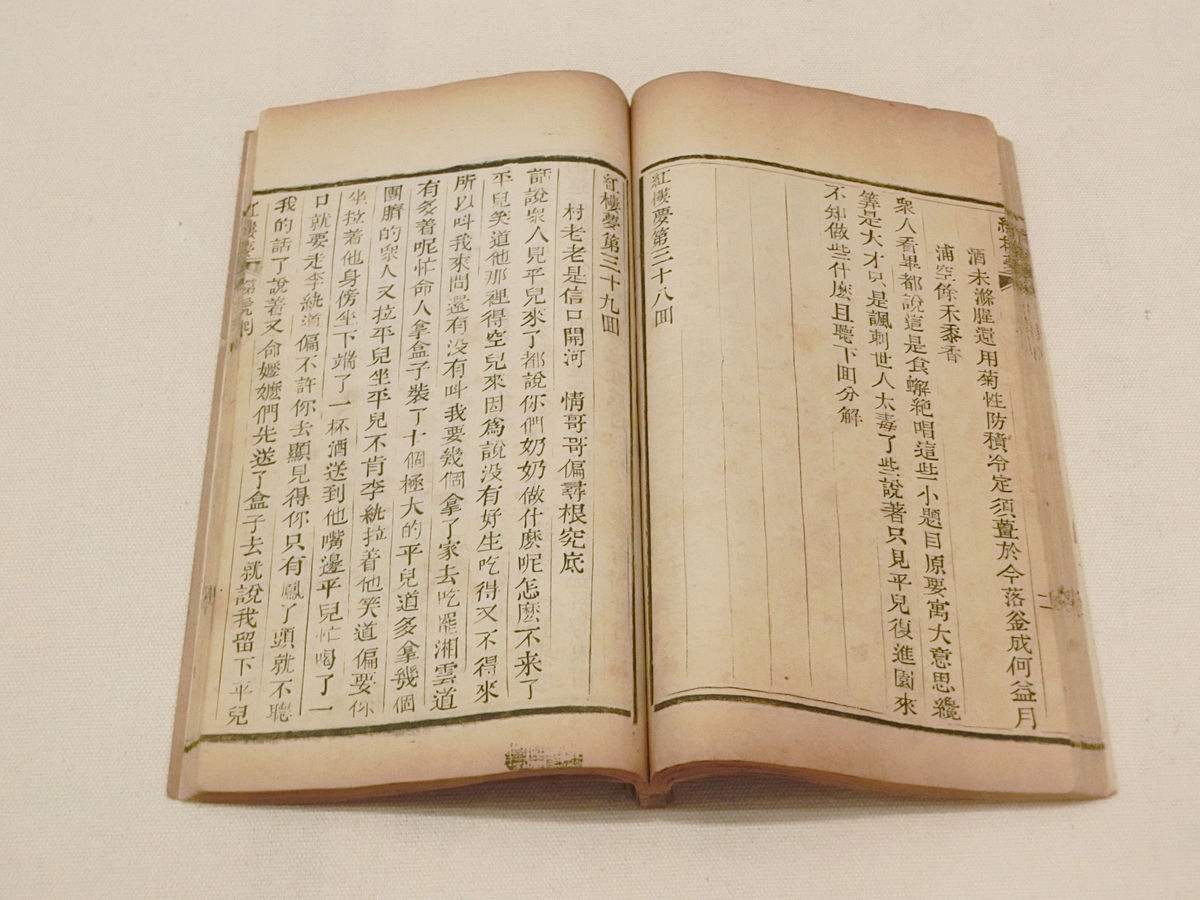 酒未滌腥還用菊性防積冷定須薑於今落釜成何益月
浦空餘禾黍香
衆人看畢都說這是食蠏絶唱這些小題目原要寓大意思纔
筭是大才只是諷刺世人太毒了些說著只見平兒復進園來
不知做些什麽且聽下囬分解
紅樓夢第三十八囬
紅樓夢第三十九囬
村老老是信口開河 情哥哥偏尋根究底
話說衆人見平兒來了都說你們奶奶做什麽呢怎麽不来了
平兒笑道他那裡得空兒来因爲說没有好生吃得又不得來
所以呌我來問還有没有呌我要幾個拿了家去吃罷湘雲道
有多着呢忙命人拿盒子裝了十個極大的平兒道多拿幾個
團臍的衆人又拉平兒坐平兒不肯李紈拉着他笑道偏要你
坐拉着他身傍坐下端了一杯酒送到他嘴邊平兒忙喝了一
口就要走李紈道偏不許你去顯見得你只有鳳丫頭就不聽
我的話了說着又命嬷嬷們先送了盒子去就說我留下平兒
紅樓夢